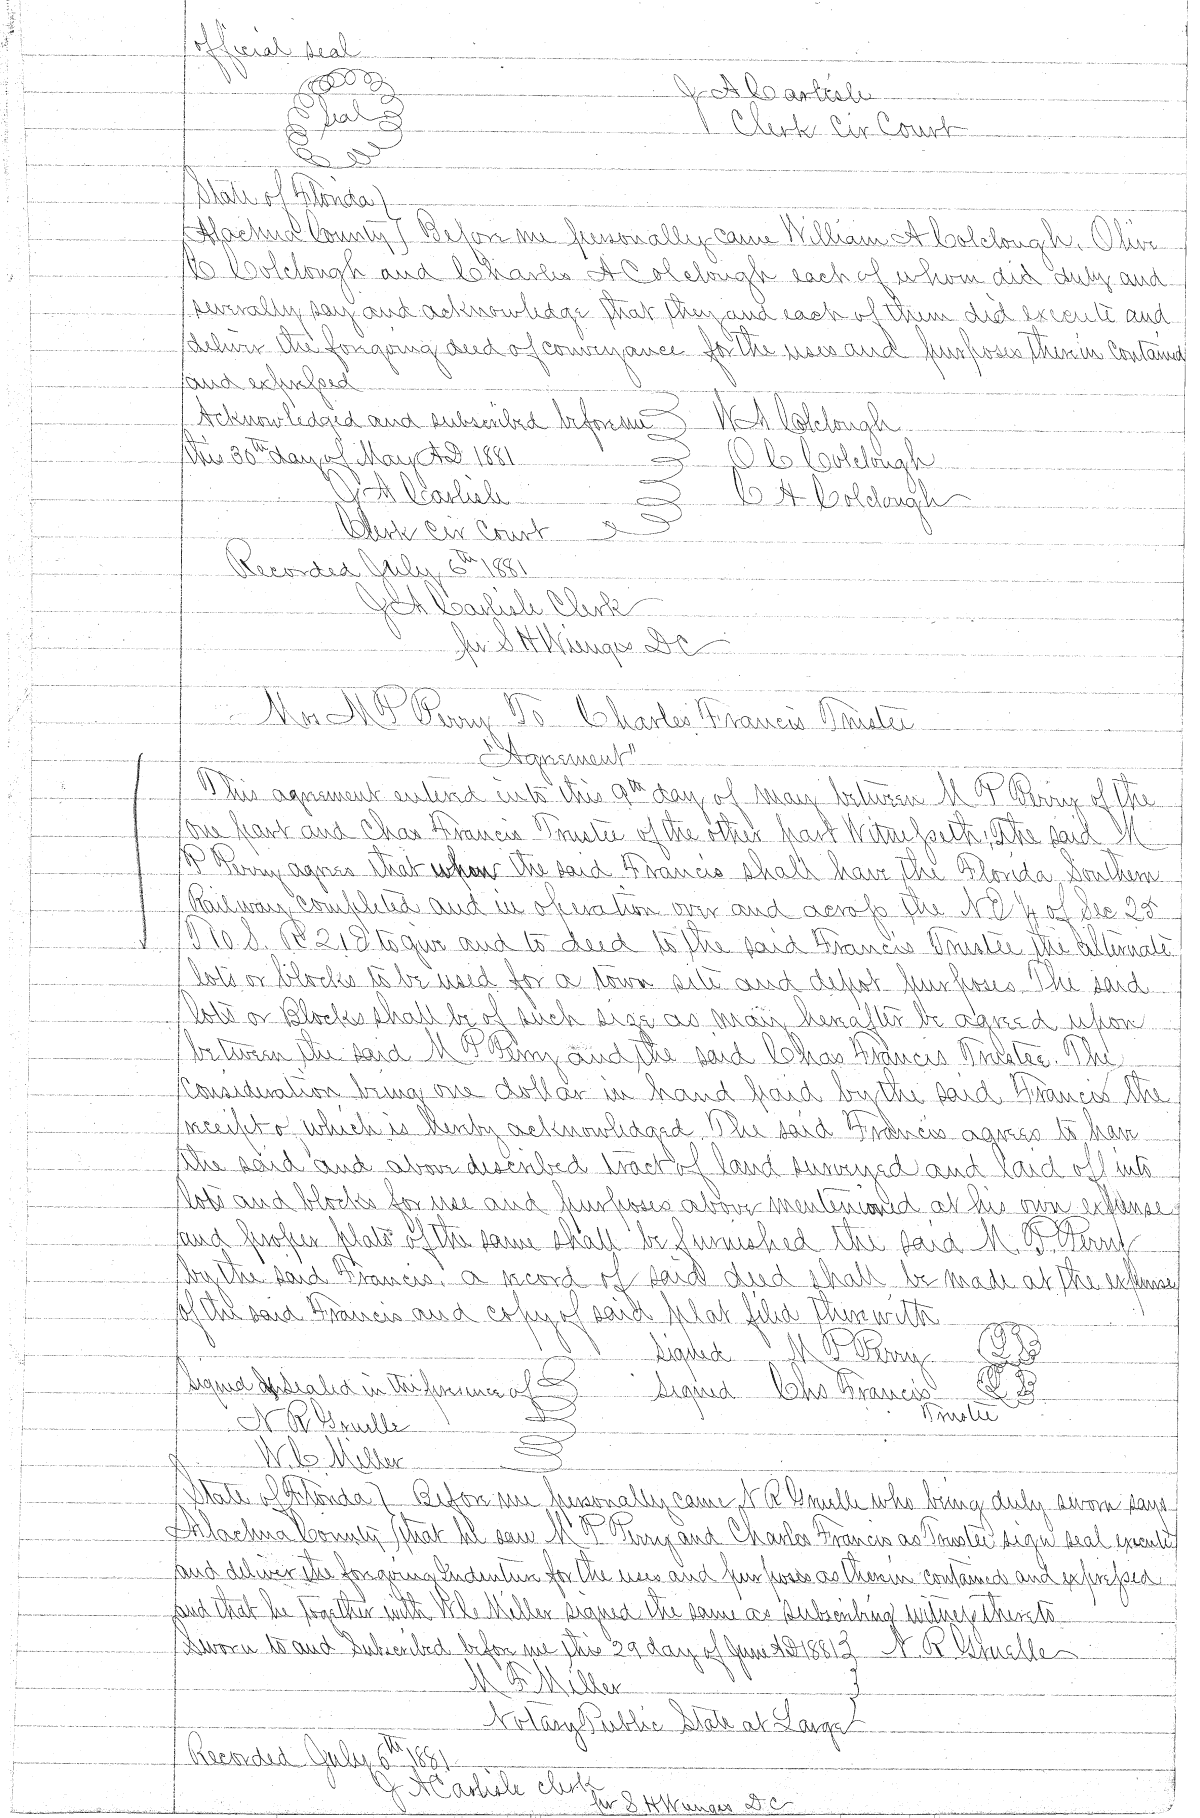 official seal
Seal
J A Carlisle
Clerk Cir Court
State of Florida
Alachua County Before me personally came William A Colclough, Olive
C Colclough and Charles A Colclough each of whom did duly and
severally say and acknowledge that they and each of them did execute and
deliver the forgoing deed of conveyance for the uses and purposes therein contained
and expressed
Acknowledged and subscribed before me W A Colclough
this 30th day of May AD 1881 O C Colclough
J A Carlisle C A Colclough
Clerk Cir Court
Recorded July 6th 1881
J A Carlisle Clerk
per S H Wienges DC
Mrs M P Perry To Charles Francis Trustee
"Agreement"
This agreement entered into this 9th day of May between M P Perry of the
one part and Chas Francis Trustee of the other part Witnesseth; The said M
P Perry agrees that when the said Francis shall have the Florida Southern
Railway completed and in operation over and across the N.E 1/4 of Sec 25
T10 S. R 21 E to give and to deed to the said Francis Trustee the alternate
lots or blocks to be used for a town site and depot purposes. The said
lots or Blocks shall be of such size as may hereafter be agreed upon
between the said M P Perry and the said Chas Francis Trustee. The
consideration being one dollar in hand paid by the said Francis the
receipt of which is hereby acknowledged. The said Francis agrees to have
the said and above described tract of land surveyed and laid off into
lots and blocks for use and purposes above mentioned at his own expense
and proper plats of the same shall be furnished the said M. P. Perry
by the said Francis. a record of said deed shall be made at the expense
of the said Francis and copy of said plat filed therewith
signed M P Perry
Signed & sealed in the presence of signed Chs Francis
Trustee
N R Gruelle
W. C Miller
State of Florida Before me personally came N R Gruelle who being duly sworn says
Alachua County that he saw M P Perry and Charles Francis as Trustee sign seal execute
and deliver the forgoing Indenture for the uses and purposes as therein contained and expressed
and that he together with W C Miller signed the same as subscribing witness thereto
Sworn to and Subscribed before me this 29 day of June AD 1881 N. R Gruelle
M F Miller
Notary Public State at Large
Recorded July 6th 1881
J A Carlisle clerk
per S H Wienges DC